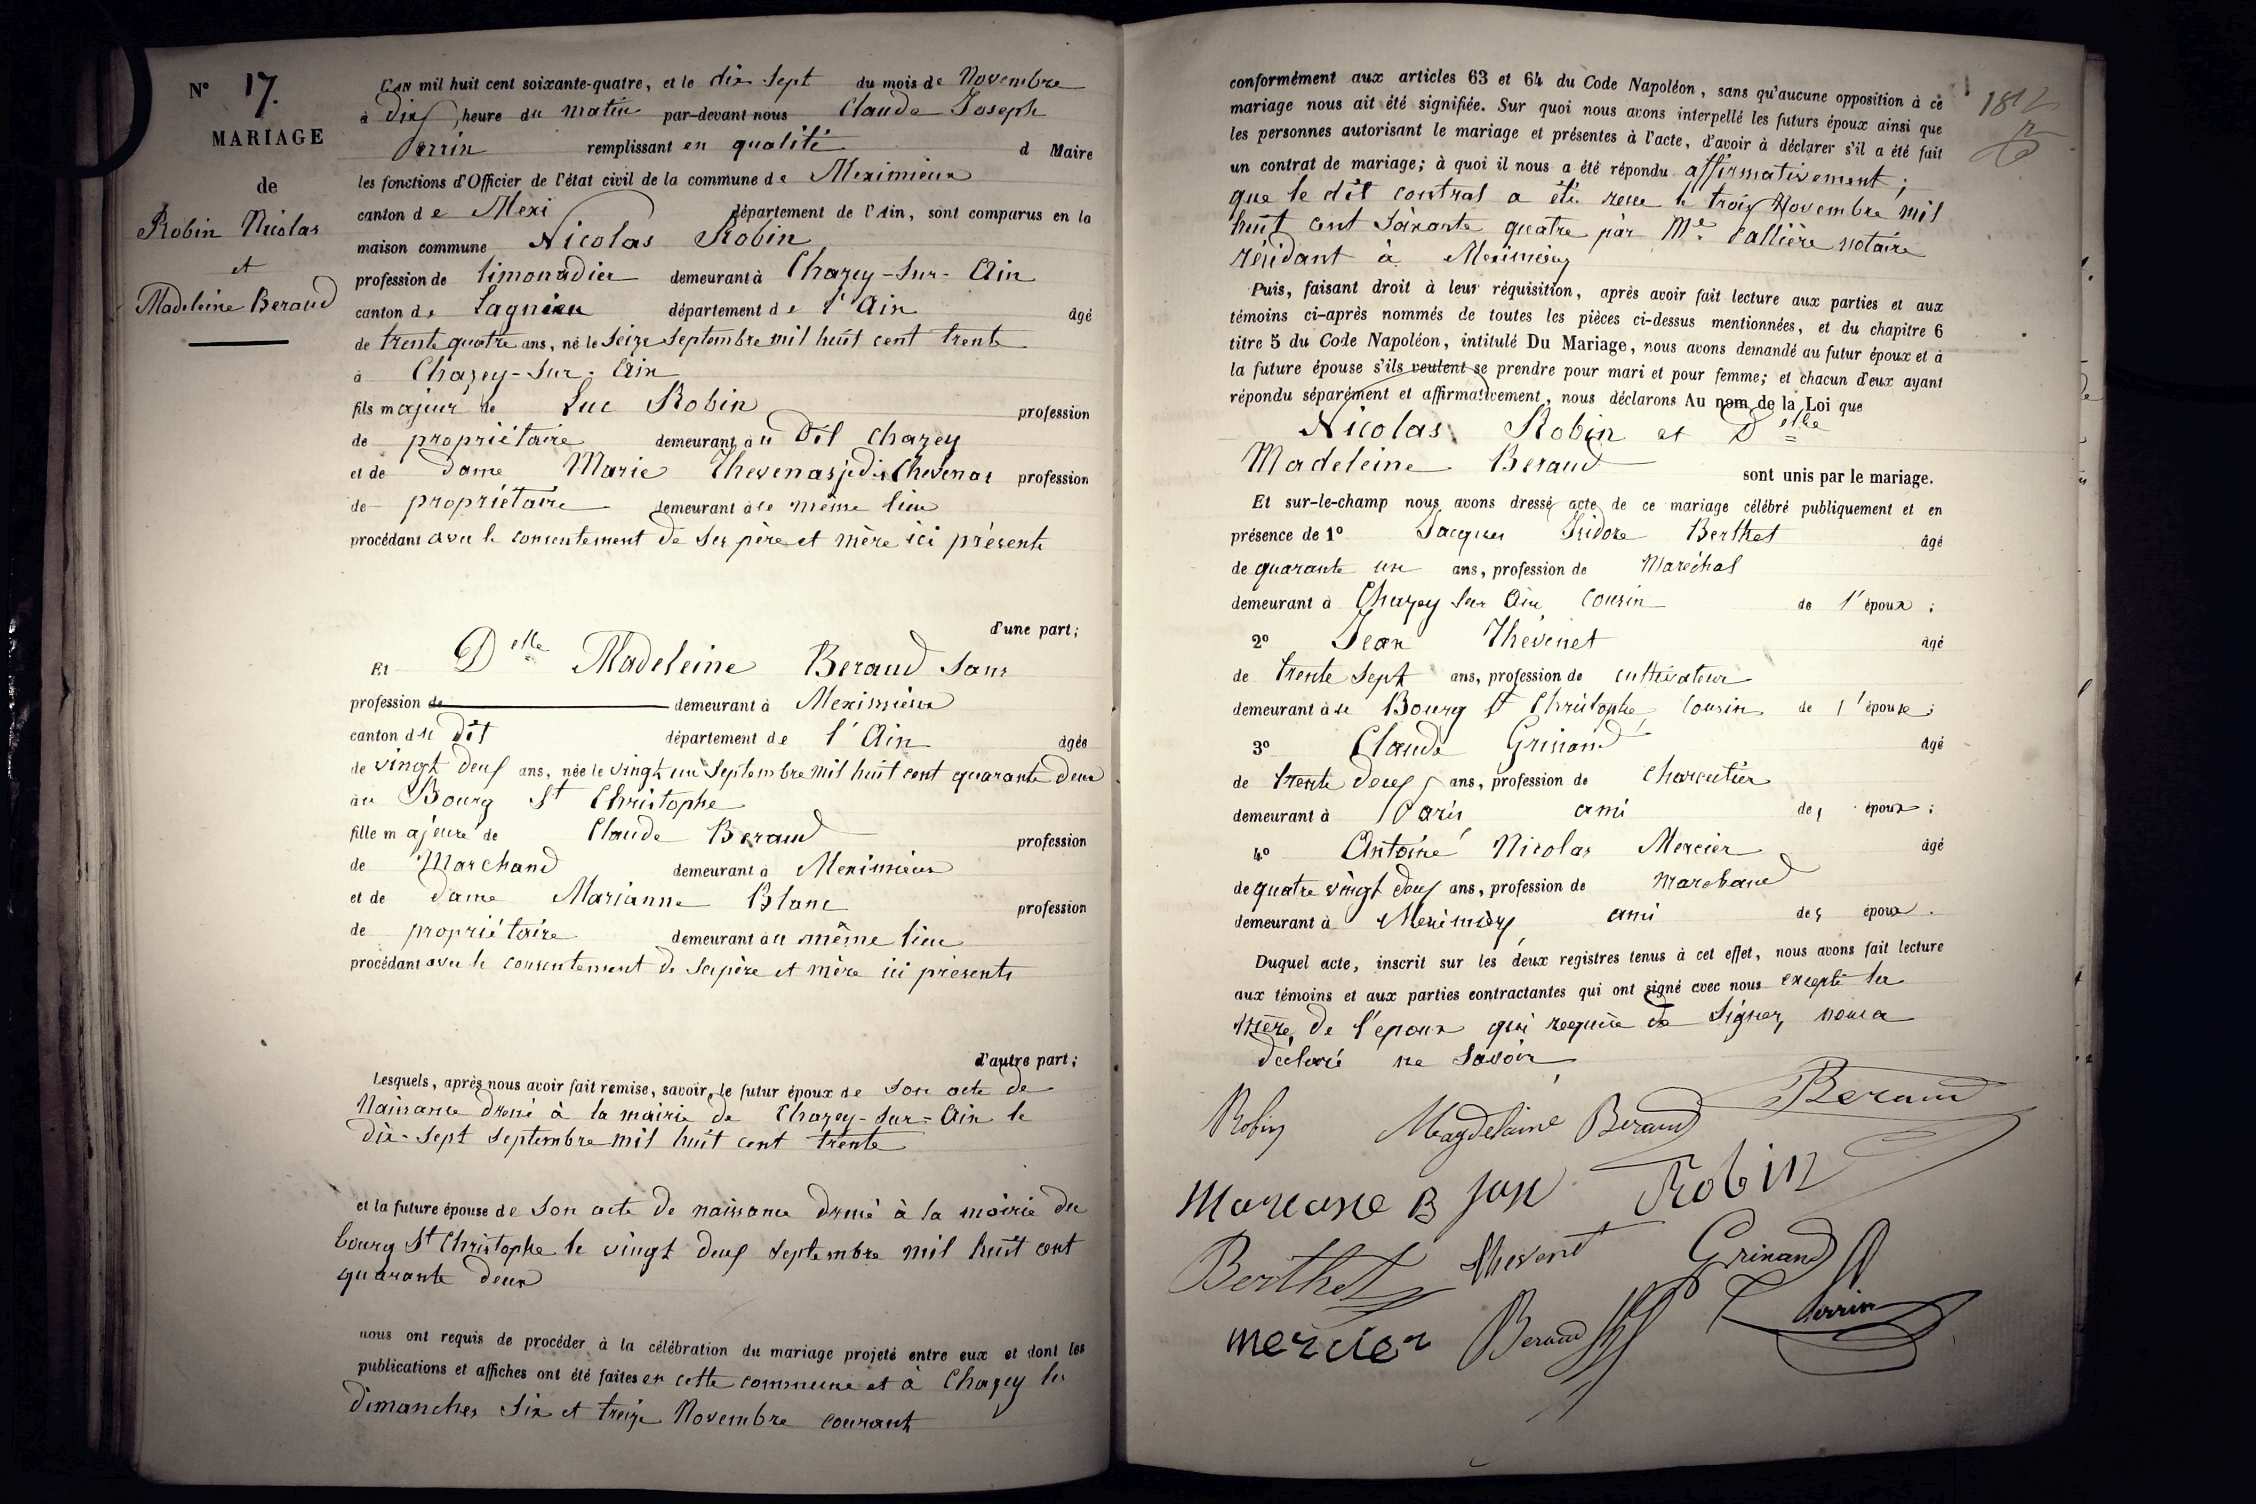 N° 17.
MARIAGE
de
Robin Nicolas
et
Madeleine Beraud
L'AN mil huit cent soixante-quatre, et le dix sept du mois de Novembre
à dix heure du matin par-devant nous Claude Joseph
Perrin remplissant en qualité d Maire
les fonctions d'Officier de l'état civil de la commune de Meximieux
canton de Mexi département de l'Ain, sont comparus en la
maison commune Nicolas Robin
profession de limonadier demeurant à Chazey-sur-Ain
canton de Lagnieu département de l'Ain âgé
de trente quatre ans, né le Seize Septembre mil huit cent trente
à Chazey-sur-Ain
fils majeur de Luc Robin profession
de propriétaire demeurant au dit Chazey
et de dame Marie Thevenas profession
de propriétaire demeurant à ce même lieu
procédant avec le consentement de ses père et mère ici présents
d'une part;
Et Delle Madeleine Beraud sans
profession de demeurant à Meximieux
canton du dit département de l'Ain âgée
de vingt deux ans, née le vingt un Septembre mil huit cent quarante deux
au Bourg St Christophe
fille majeure de Claude Beraud profession
de Marchand demeurant à Meximieux
et de dame Marianne Blanc profession
de propriétaire demeurant au même lieu
procédant avec le consentement de ses père et mère ici présents
d'autre part;
Lesquels, après nous avoir fait remise, savoir, le futur époux de son acte de
Naissance dressé à la mairie de Chazey-sur-Ain le
dix-sept septembre mil huit cent trente
et la future épouse de son acte de naissance dressé à la mairie du
bourg St Christophe le vingt deux septembre mil huit cent
quarante deux
nous ont requis de procéder à la célébration du mariage projeté entre eux et dont les
publications et affiches ont été faites en cette commune et à Chazey les
dimanches six et treize Novembre courant
conformément aux articles 63 et 64 du Code Napoléon, sans qu'aucune opposition à ce
mariage nous ait été signifiée. Sur quoi nous avons interpellé les futurs époux ainsi que
les personnes autorisant le mariage et présentes à l'acte, d'avoir à déclarer s'il a été fait
un contrat de mariage; à quoi il nous a été répondu affirmativement;
que le dit contrat a été reçu le trois Novembre mil
huit cent soixante quatre par Me. Vallière notaire
résidant à Meximieux
Puis, faisant droit à leur réquisition, après avoir fait lecture aux parties et aux
témoins ci-après nommés de toutes les pièces ci-dessus mentionnées, et du chapitre 6
titre 5 du Code Napoléon, intitulé Du Mariage, nous avons demandé au futur époux et à
la future épouse s'ils veulent se prendre pour mari et pour femme; et chacun d'eux ayant
répondu séparément et affirmativement, nous déclarons Au nom de la Loi que
Nicolas Robin et Delle
Madeleine Beraud sont unis par le mariage.
Et sur-le-champ nous avons dressé acte de ce mariage célébré publiquement et en
présence de 1° Jacques Isidore Berthet âgé
de quarante un ans, profession de Maréchal
demeurant à Chazey sur Ain cousin de l'époux;
2° Jean Thévenet âgé
de trente sept ans, profession de cultivateur
demeurant à ce Bourg St Christophe, cousin de l'épouse;
3° Claude Grinand âgé
de trente deux ans, profession de charcutier
demeurant à Paris ami des époux;
4° Antoine Nicolas Mercier âgé
de quatre vingt deux ans, profession de Marchand
demeurant à Meximieux ami des époux.
Duquel acte, inscrit sur les deux registres tenus à cet effet, nous avons fait lecture
aux témoins et aux parties contractantes qui ont signé avec nous excepté la
mère de l'époux qui requise de signer, nous a
déclaré ne savoir
Robin Magdelaine Beraud Beraud
Mariane B Robin
Berthet Thevenet Grinand
mercier Beraud Perrin